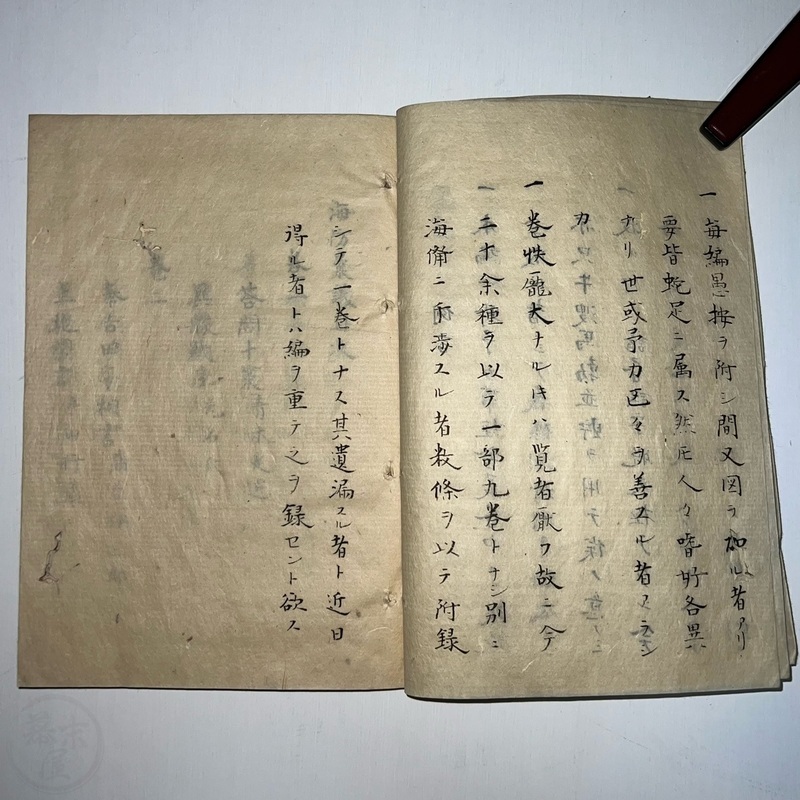 一 毎編愚按ヲ附シ間又図ヲ加ル者アリ
要皆蛇足ニ属ス然𪜈人々嗜好各異
ナリ世或予カ区々ヲ善スル者アラン
カ只牛溲馬勃並野ヲ用テ後ノ意ノミ
一 巻帙厖大ナル𪜈ハ覧者厭フ故ニ今
二十余種ヲ以テ一部九巻トナシ別ニ
海備ニ干渉スル者数條ヲ以テ附録
シテ一巻トナス其遺漏スル者ト近日
得ル者トハ編ヲ重テ之ヲ録セント欲ス